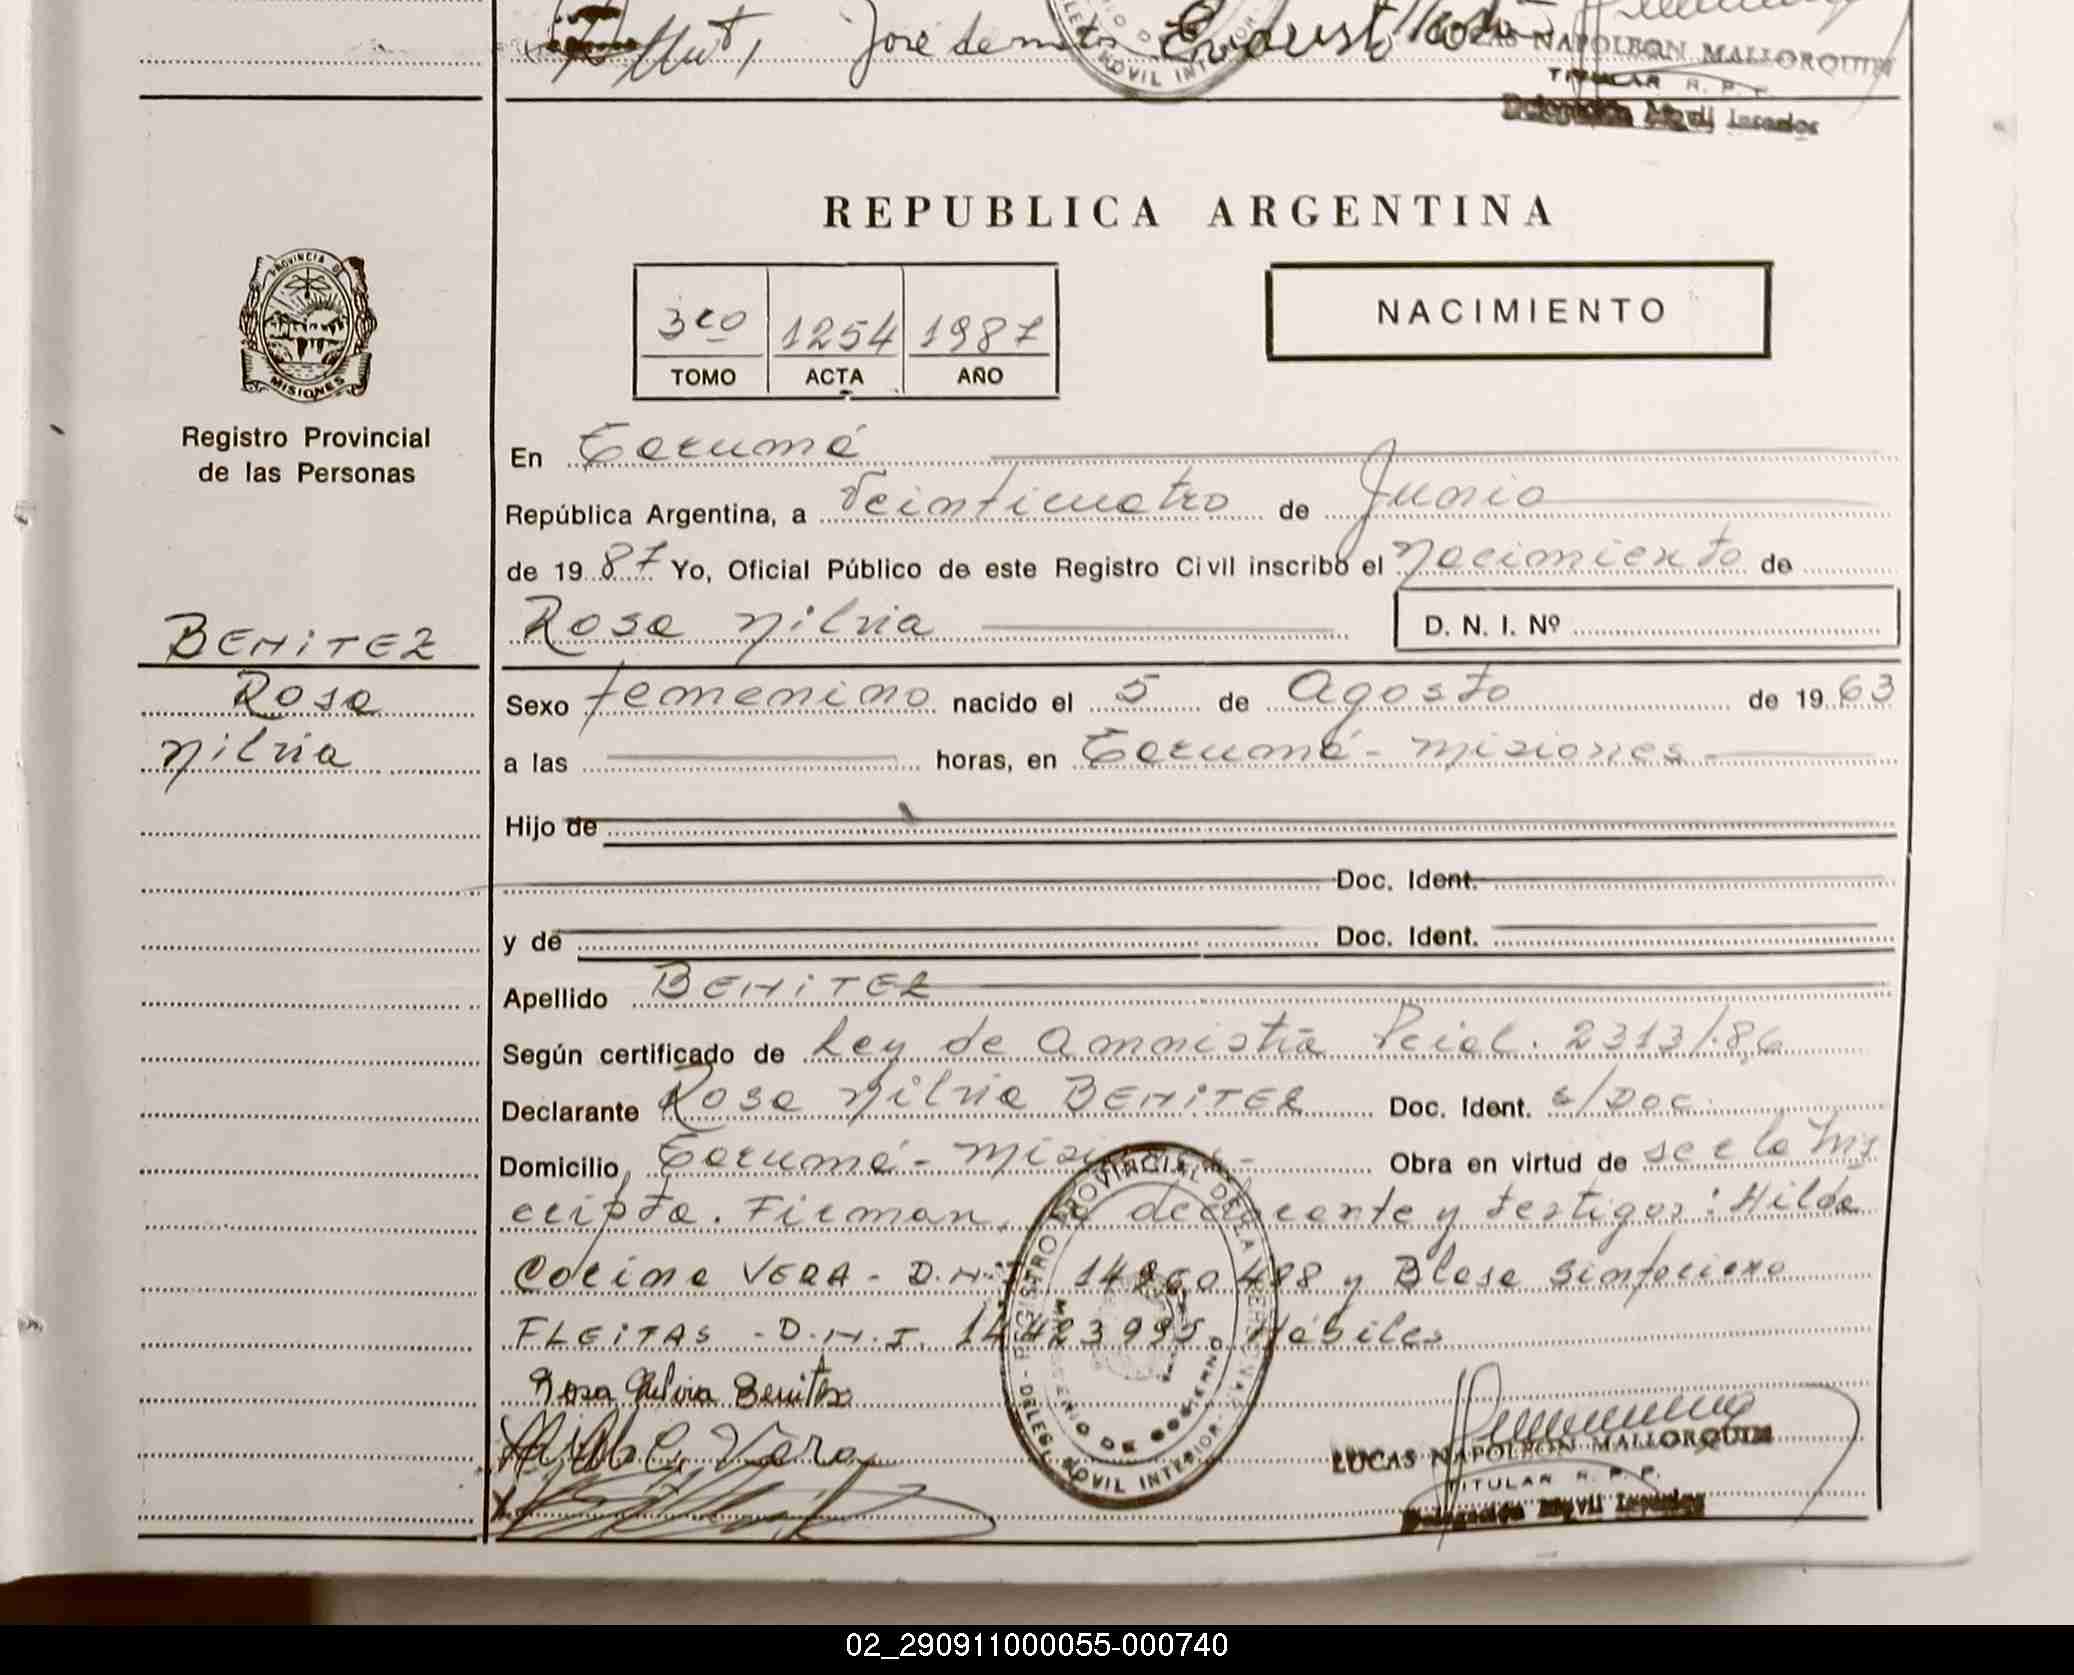 José de matos
LUCAS NAPOLEON MALLORQUIN
TITULAR R. P. P.
REPUBLICA ARGENTINA
3ro 1254 1987
TOMO ACTA AÑO
NACIMIENTO
PROVINCIA DE
MISIONES
Registro Provincial
de las Personas
BENITEZ
Rosa
Nilvia
En Carumé
República Argentina, a Veinticuatro de Junio
de 1987 Yo, Oficial Público de este Registro Civil inscribo el Nacimiento de
Rosa Nilvia D. N. I. Nº
Sexo femenino nacido el 5 de Agosto de 1963
a las horas, en Carumé - Misiones -
Hijo de
Doc. Ident.
y de Doc. Ident.
Apellido BENITEZ
Según certificado de Ley de Amnistía Pcial. 2313/86
Declarante Rosa Nilvia BENITEZ Doc. Ident. s/Doc.
Domicilio Carumé - Misiones - Obra en virtud de ser la Ins
cripta. Firman, la declarante y testigos: Hilda
Corina VERA - D.N.I. 14 y Blasa Sinforiana
FLEITAS - D.N.I. 14423995 Hábiles
Rosa Nilvia Benitez
Hilda C. Vera
REGISTRO PROVINCIAL DE LAS PERSONAS - DELEG. MOVIL INTERIOR -
MINISTERIO DE GOBIERNO
LUCAS NAPOLEON MALLORQUIN
TITULAR R. P. P.
02_290911000055-000740